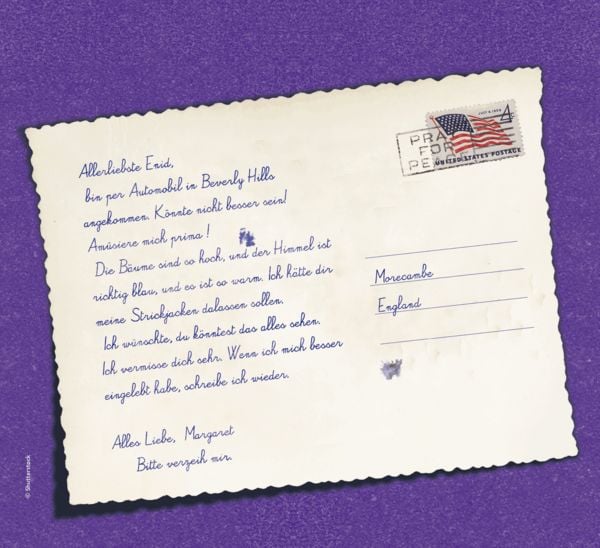 Allerliebste Enid,
bin per Automobil in Beverly Hills
angekommen. Könnte nicht besser sein!
Amüsiere mich prima!
Die Bäume sind so hoch, und der Himmel ist
richtig blau, und es ist so warm. Ich hätte dir
meine Strickjacken dalassen sollen.
Ich wünschte, du könntest das alles sehen.
Ich vermisse dich sehr. Wenn ich mich besser
eingelebt habe, schreibe ich wieder.
Alles Liebe, Margaret
Bitte verzeih mir.
JULY 4, 1960
4¢
PRA
FOR
PE
UNITED STATES POSTAGE
Morecambe
England
© Shutterstock